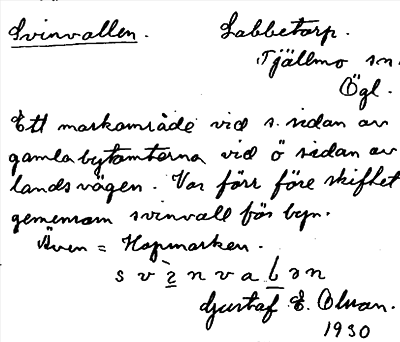 Svinvallen. Labbetorp.
Tjällmo sn.
Ögl.
Ett markområde vid s. sidan av
gamla bytomterna vid ö sidan av
landsvägen. Var förr före skiftet
gemensam svinvall för byn.
Även = Hopmarken.
Gustaf E. Olson.
1930